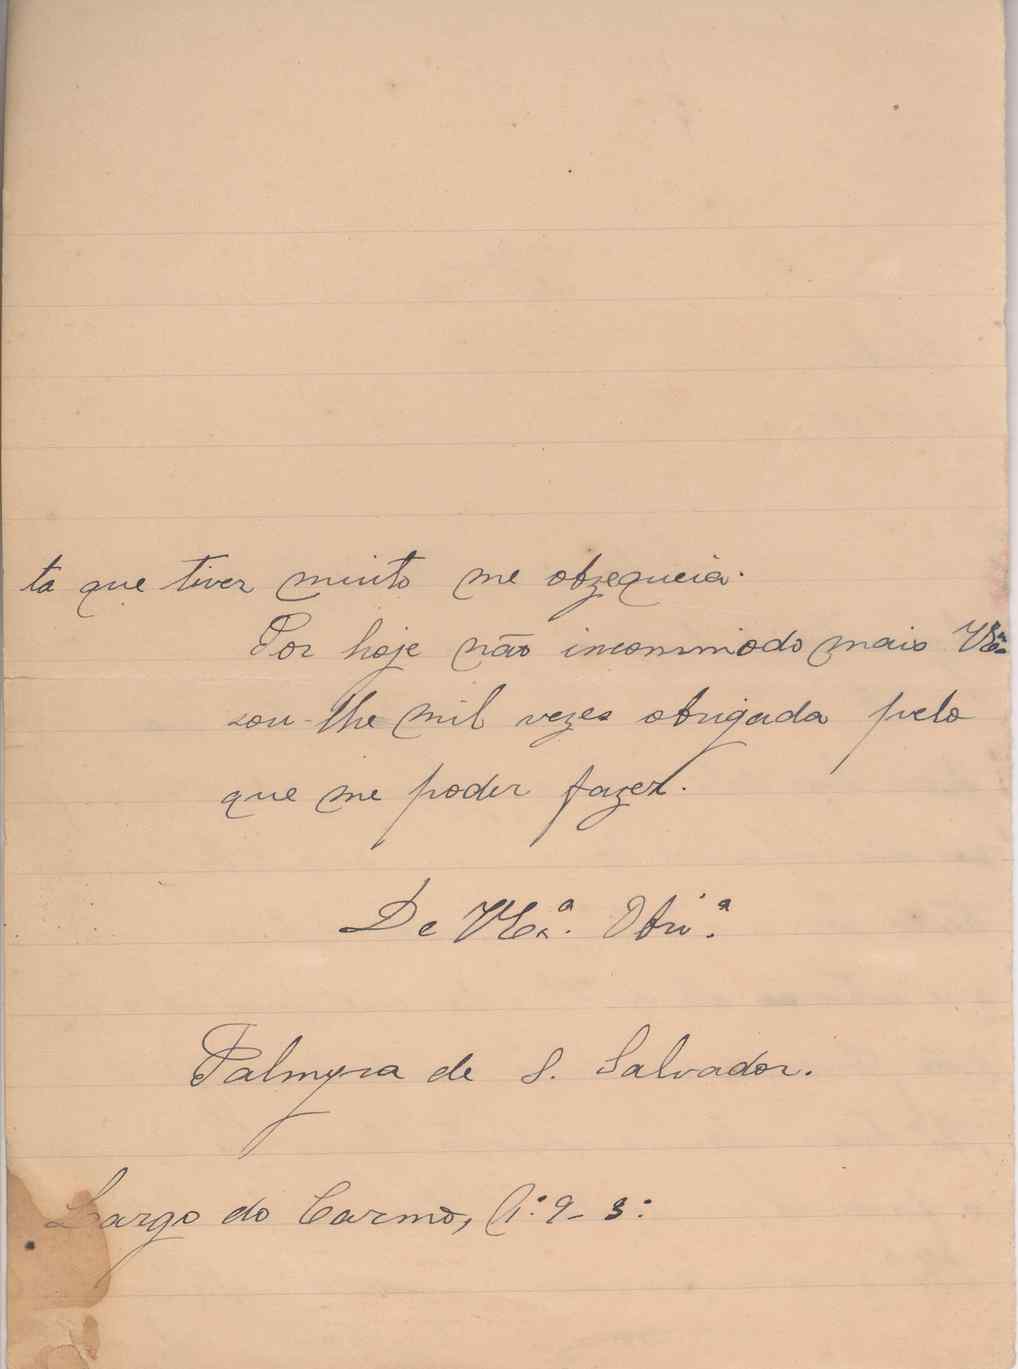 ta que tiver muito me obzequeia.
Por hoje não incommodo mais VExª
sou-lhe mil vezes obrigada pelo
que me poder fazer.
De VExª. Obriª.
Palmyra de S. Salvador.
Largo do Carmo, Nº 9- 3º